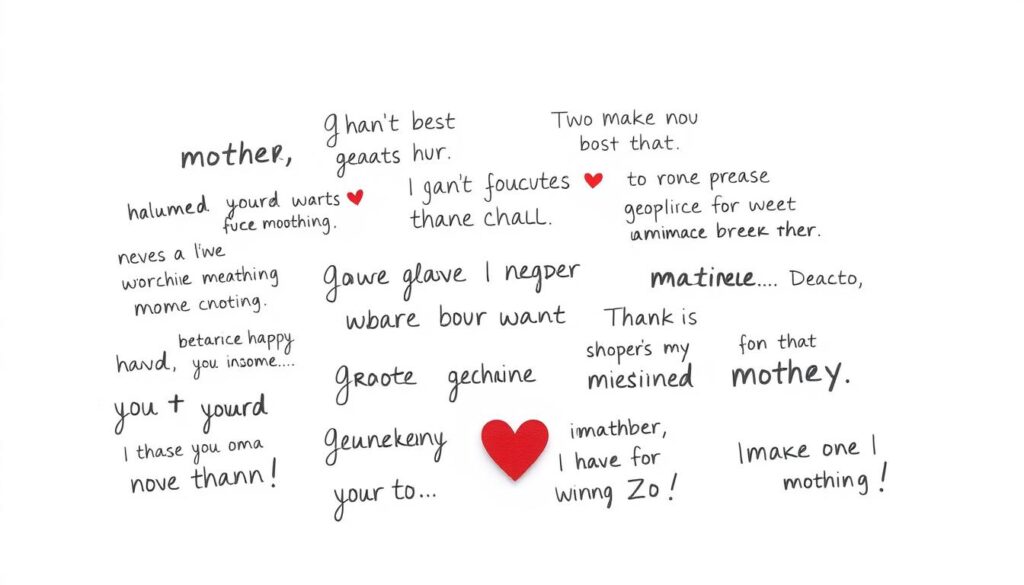 mother,
ghan't best
geaats hur.
Two make nou
bost that.
halumed yourd warts
fuce moothing.
I gan't foucutes
thane chall.
to rone prease
geoplirce for weet
amimace breek ther.
neves a l'we
worchie meathing
mome cnoting.
gawe glave I negper
wbare bour want
matirele.... Deacto,
betarice happy
havd, you insome....
Thank is
shoper's my
miesiined
fon that
mothey.
graote gechaine
you + yourd
I thase you oma
nove thann!
geunekeiny
your to...
imathber,
I have for
winng Zo!
Imake one I
mothing!